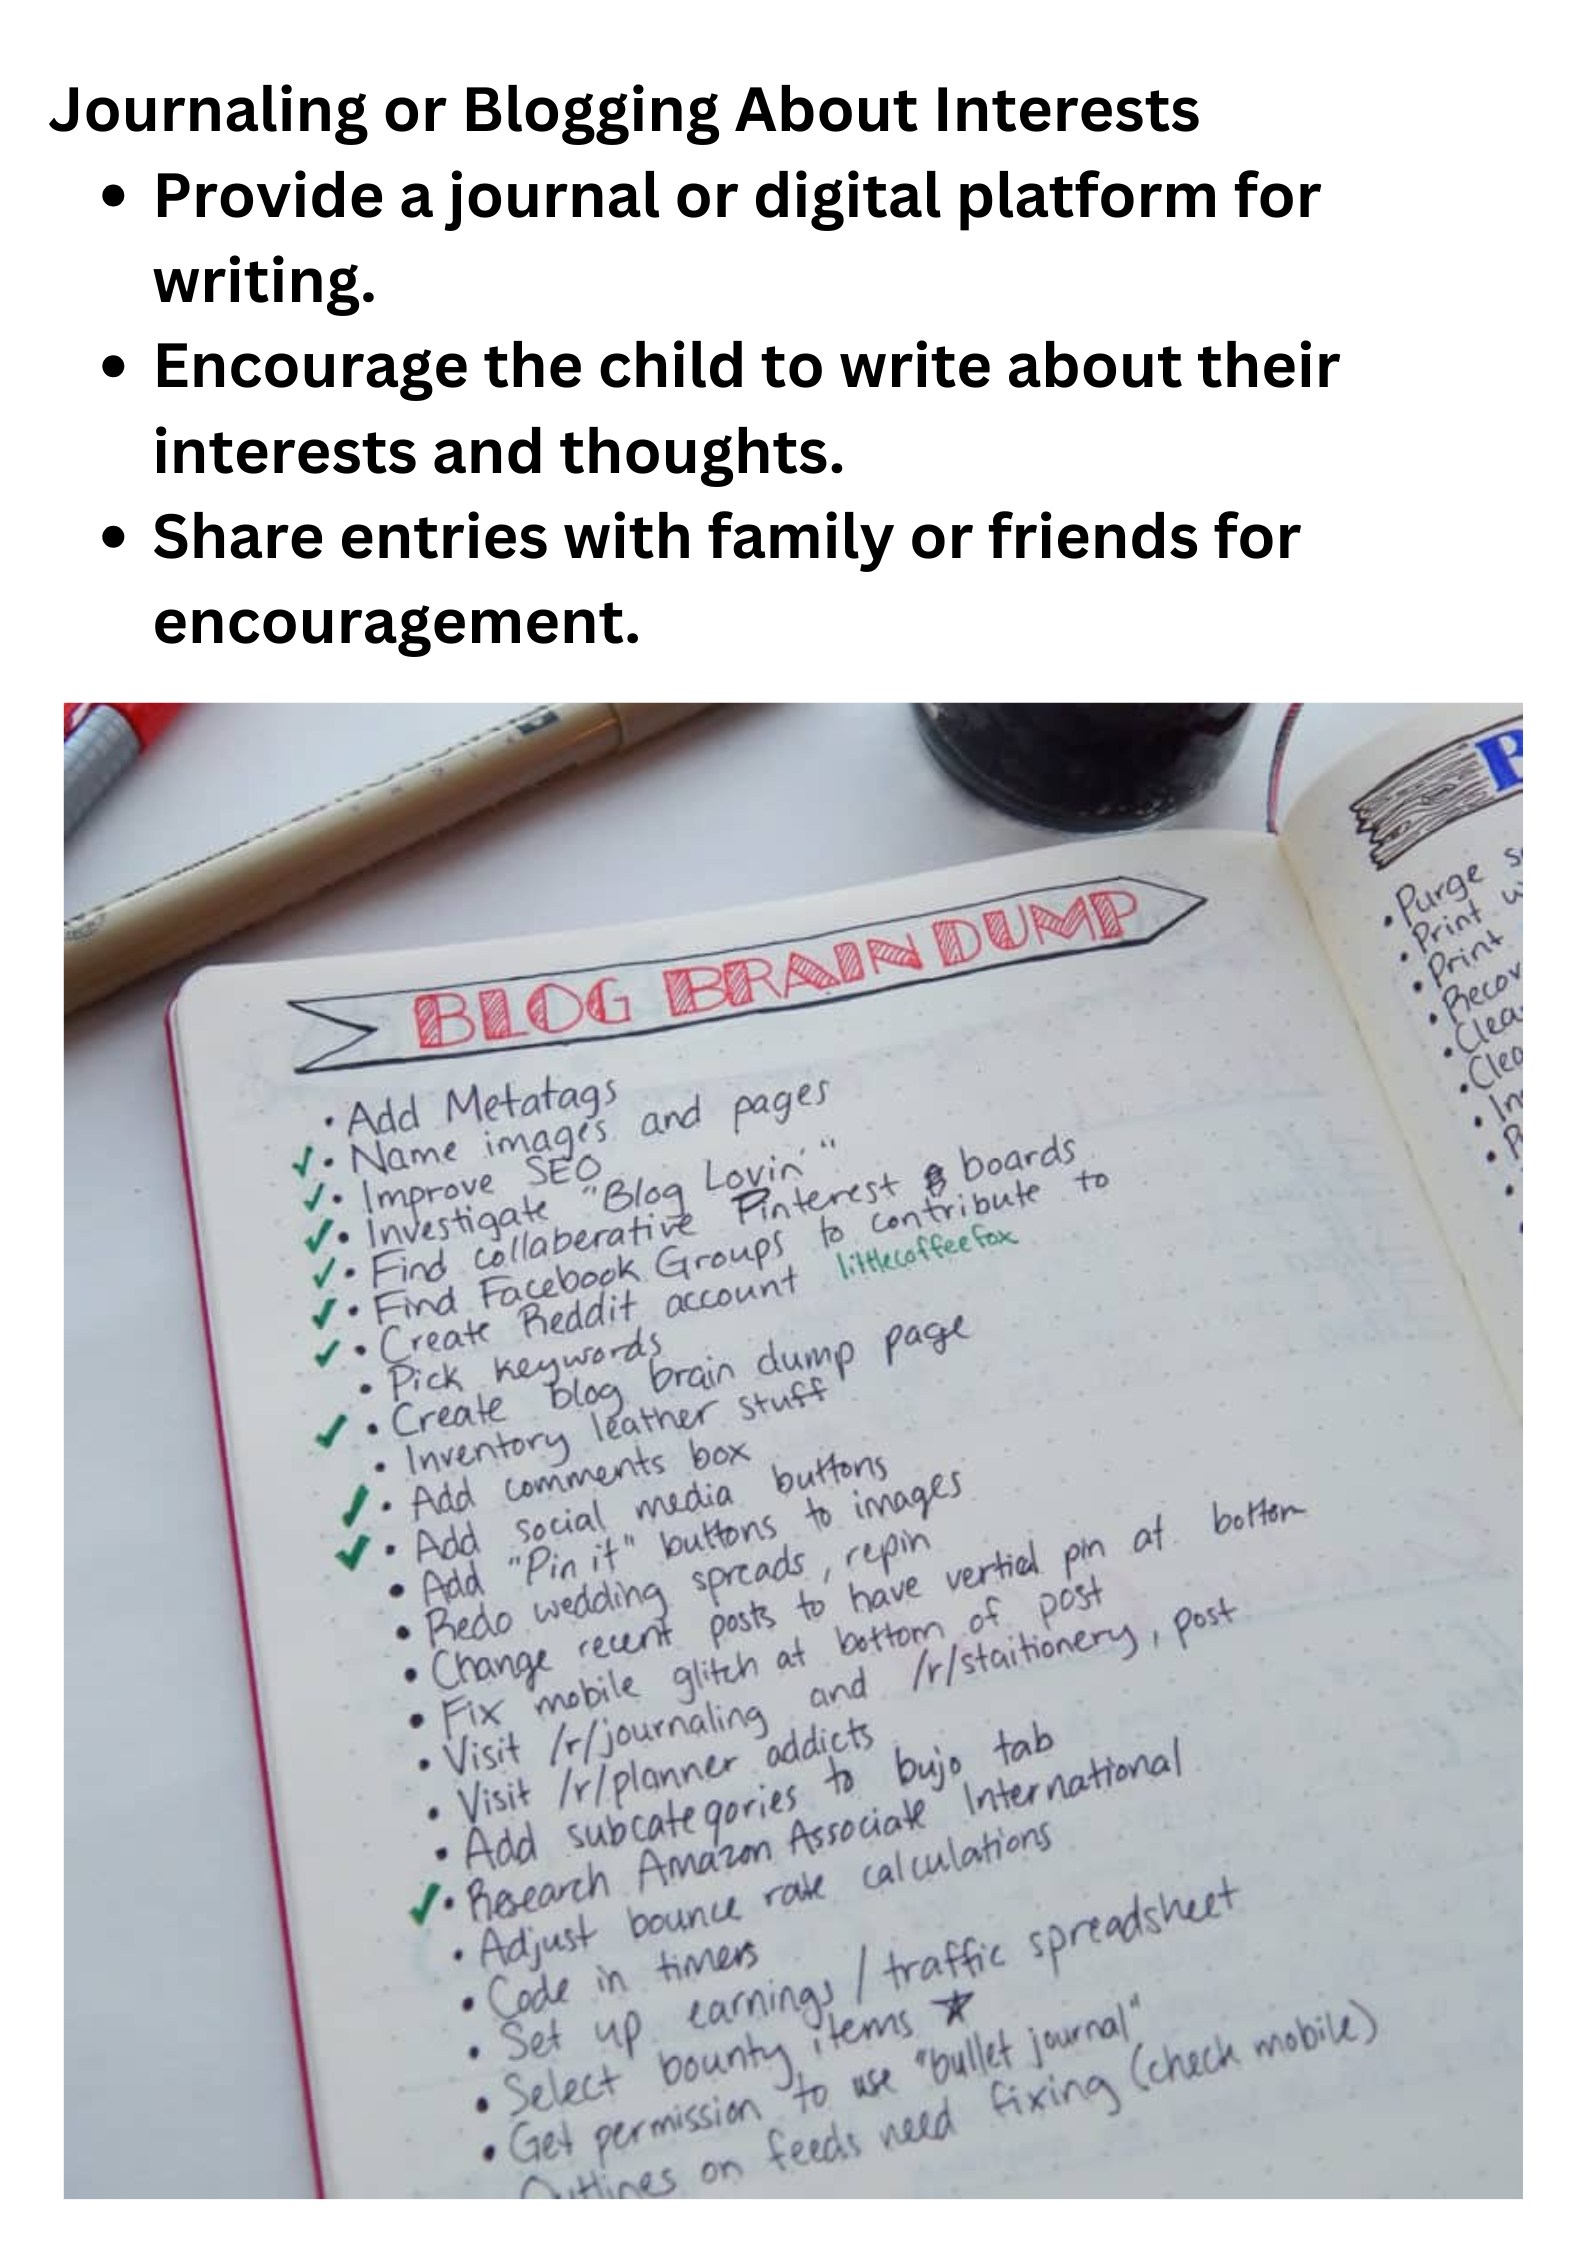 Journaling or Blogging About Interests
• Provide a journal or digital platform for
writing.
• Encourage the child to write about their
interests and thoughts.
• Share entries with family or friends for
encouragement.
BLOG BRAIN DUMP
• Add Metatags
✓ • Name images and pages
✓ • Improve SEO
✓ • Investigate "Blog Lovin'"
✓ • Find collaberative Pinterest boards
✓ • Find Facebook Groups to contribute to
✓ • Create Reddit account littlecoffeefox
• Pick keywords
✓ • Create blog brain dump page
• Inventory leather stuff
✓ • Add comments box
✓ • Add social media buttons
• Add "Pin it" buttons to images
• Redo wedding spreads, repin
• Change recent posts to have vertial pin at bottom
• Fix mobile glitch at bottom of post
• Visit /r/journaling and /r/staitionery, post
• Visit /r/planner addicts
• Add subcategories to bujo tab
✓ • Research Amazon Associate International
• Adjust bounce rate calculations
• Code in timers
• Set up earnings / traffic spreadsheet
• Select bounty items ★
• Get permission to use "bullet journal"
Outlines on feeds need fixing (check mobile)
B
• Purge
• Print
• Print